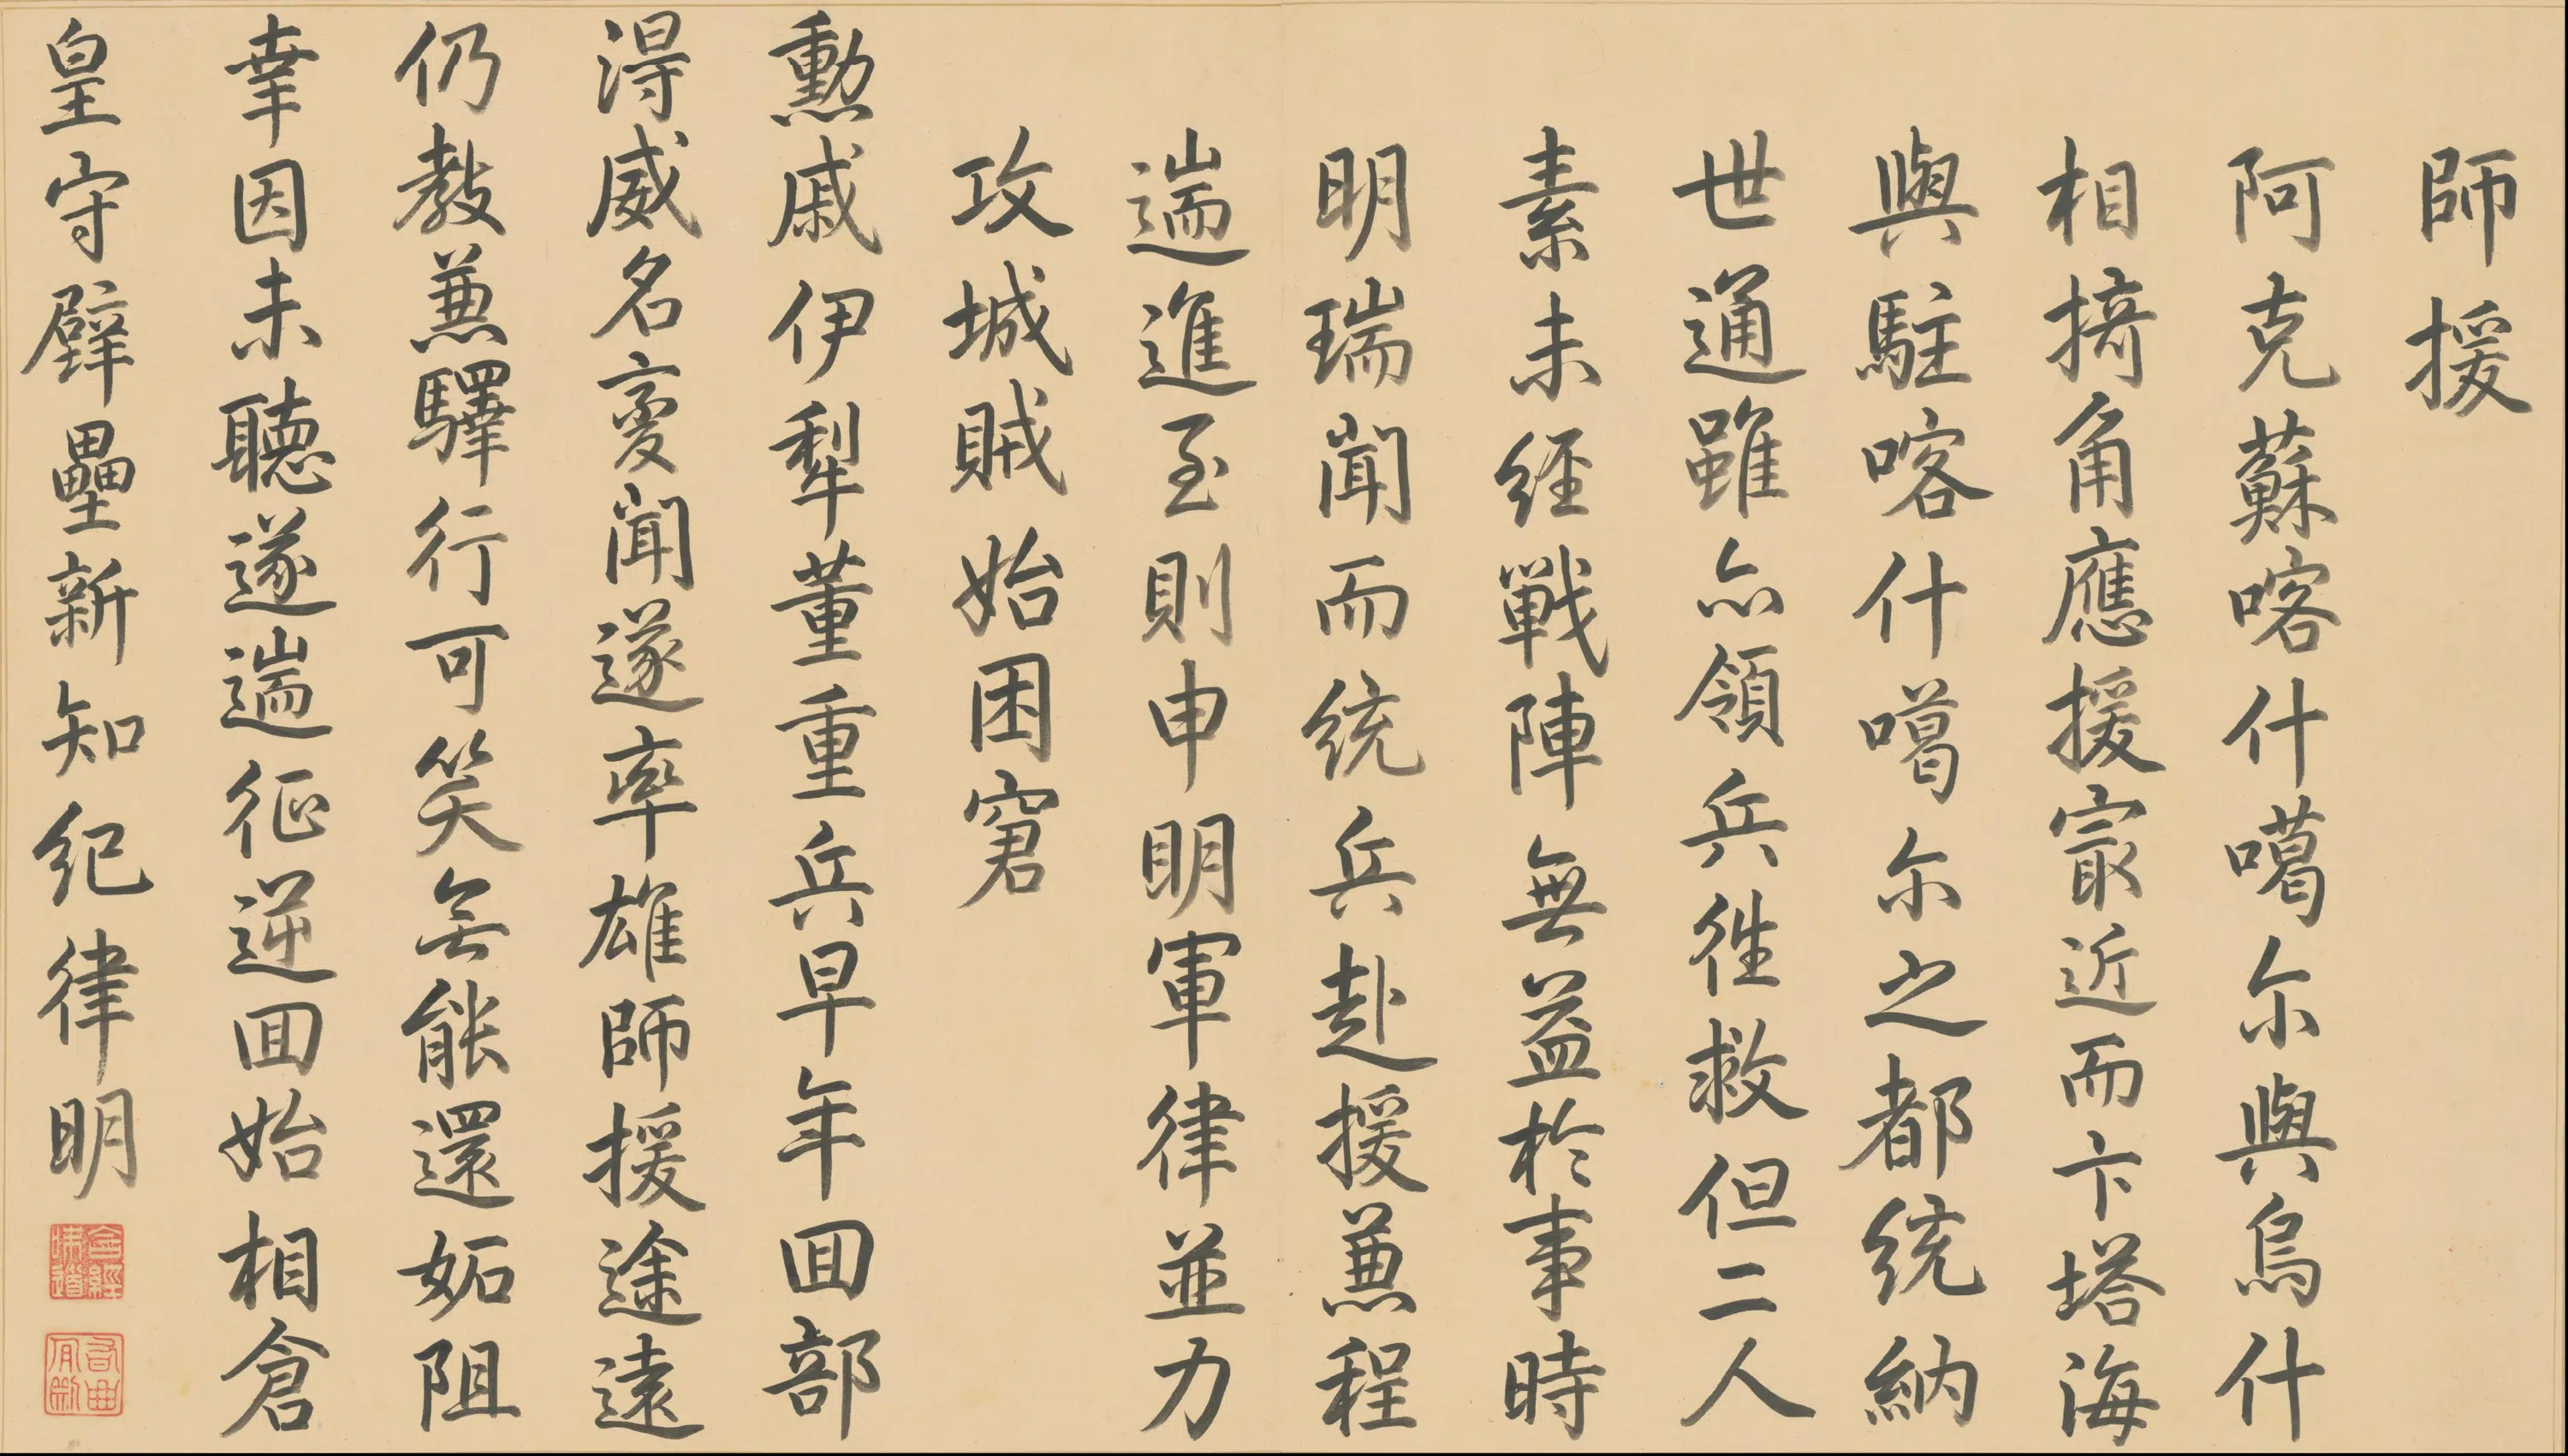 師援
阿克蘇喀什噶尔與烏什
相掎角應援㝡近而卞塔海
與駐喀什噶尔之都統納
世通雖亦領兵徃救但二人
素未經戰陣無益於事時
明瑞聞而統兵赴援兼程
遄進至則申明軍律並力
攻城賊始困窘
勲戚伊犁董重兵早年囬部
淂威名變聞遂率雄師援途遠
仍教兼驛行可笑無能還妬阻
幸因未聽遂遄征逆囬始相倉
皇守壁壘新知紀律明
含經味道